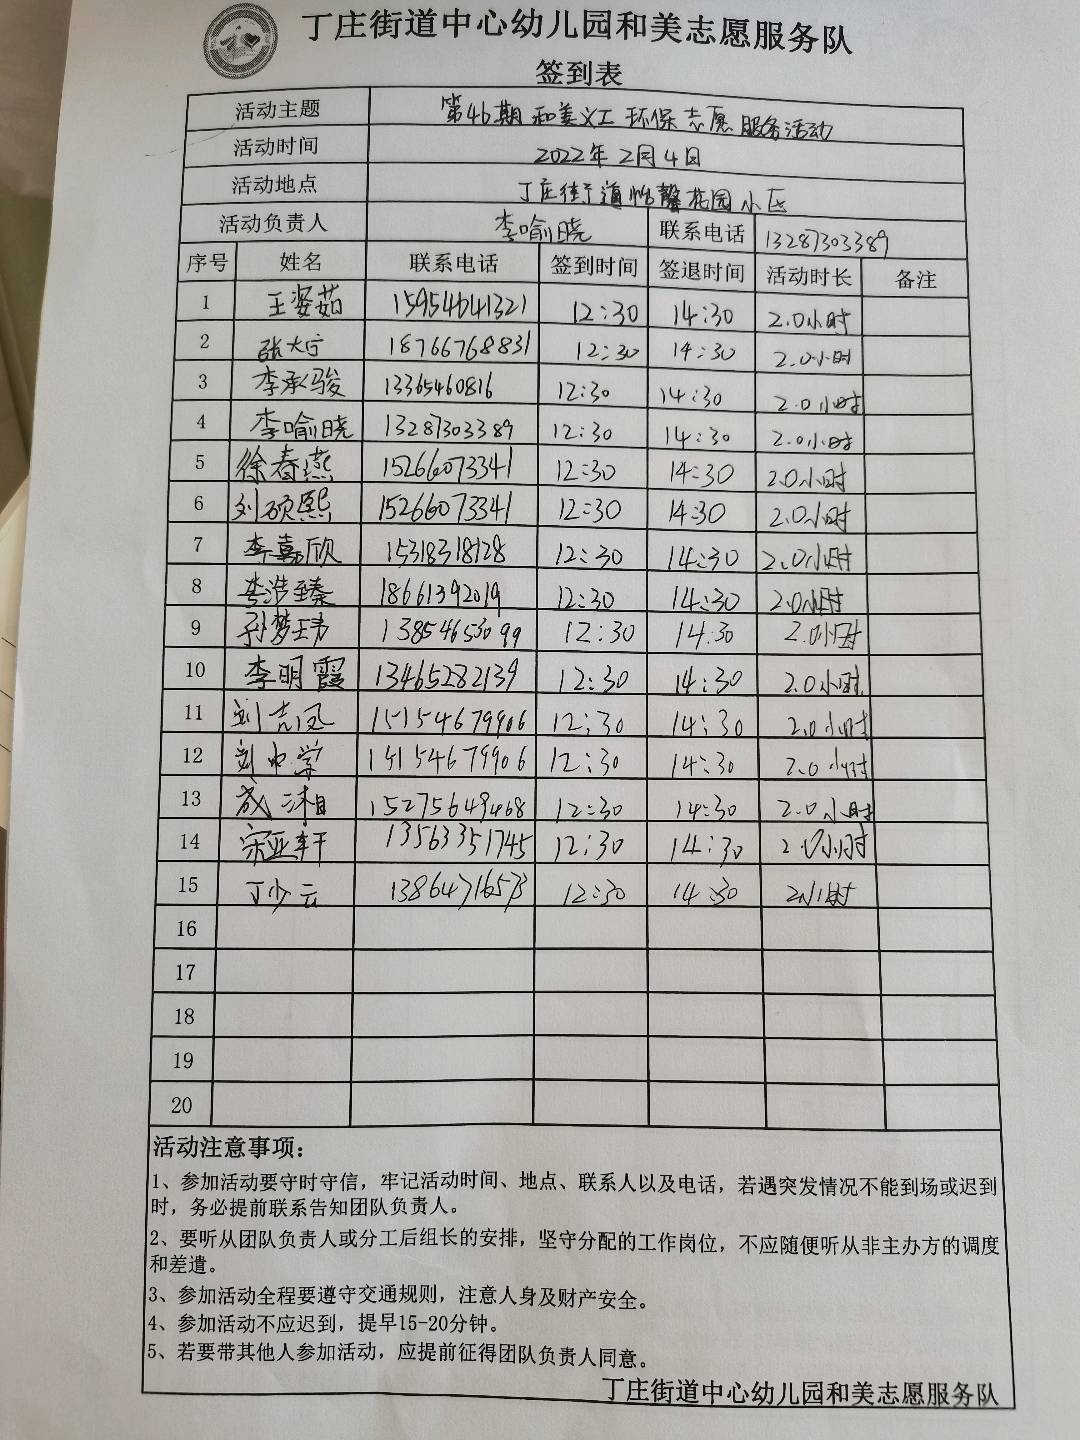 丁庄街道中心幼儿园和美志愿服务队
签到表
活动主题 第46期和美义工环保志愿服务活动
活动时间 2022年2月4日
活动地点 丁庄街道怡馨花园小区
活动负责人 李喻晓 联系电话 13287303389
序号 姓名 联系电话 签到时间 签退时间 活动时长 备注
1 王姿茹 15954641321 12:30 14:30 2.0小时
2 张大宁 18766768831 12:30 14:30 2.0小时
3 李承骏 13365460816 12:30 14:30 2.0小时
4 李喻晓 13287303389 12:30 14:30 2.0小时
5 徐春燕 15266073341 12:30 14:30 2.0小时
6 刘硕熙 15266073341 12:30 14:30 2.0小时
7 李嘉欣 15318318128 12:30 14:30 2.0小时
8 李浩臻 18661392019 12:30 14:30 2.0小时
9 孙梦玮 13854653099 12:30 14:30 2.0小时
10 李明霞 13465282139 12:30 14:30 2.0小时
11 刘吉凤 15154679906 12:30 14:30 2.0小时
12 刘中学 15154679906 12:30 14:30 2.0小时
13 15275649468 12:30 14:30 2.0小时
14 宋亚轩 13563351745 12:30 14:30 2.0小时
15 丁少云 13864716573 12:30 14:30 2小时
16
17
18
19
20
活动注意事项：
1、参加活动要守时守信，牢记活动时间、地点、联系人以及电话，若遇突发情况不能到场或迟到
时，务必提前联系告知团队负责人。
2、要听从团队负责人或分工后组长的安排，坚守分配的工作岗位，不应随便听从非主办方的调度
和差遣。
3、参加活动全程要遵守交通规则，注意人身及财产安全。
4、参加活动不应迟到，提早15-20分钟。
5、若要带其他人参加活动，应提前征得团队负责人同意。
丁庄街道中心幼儿园和美志愿服务队